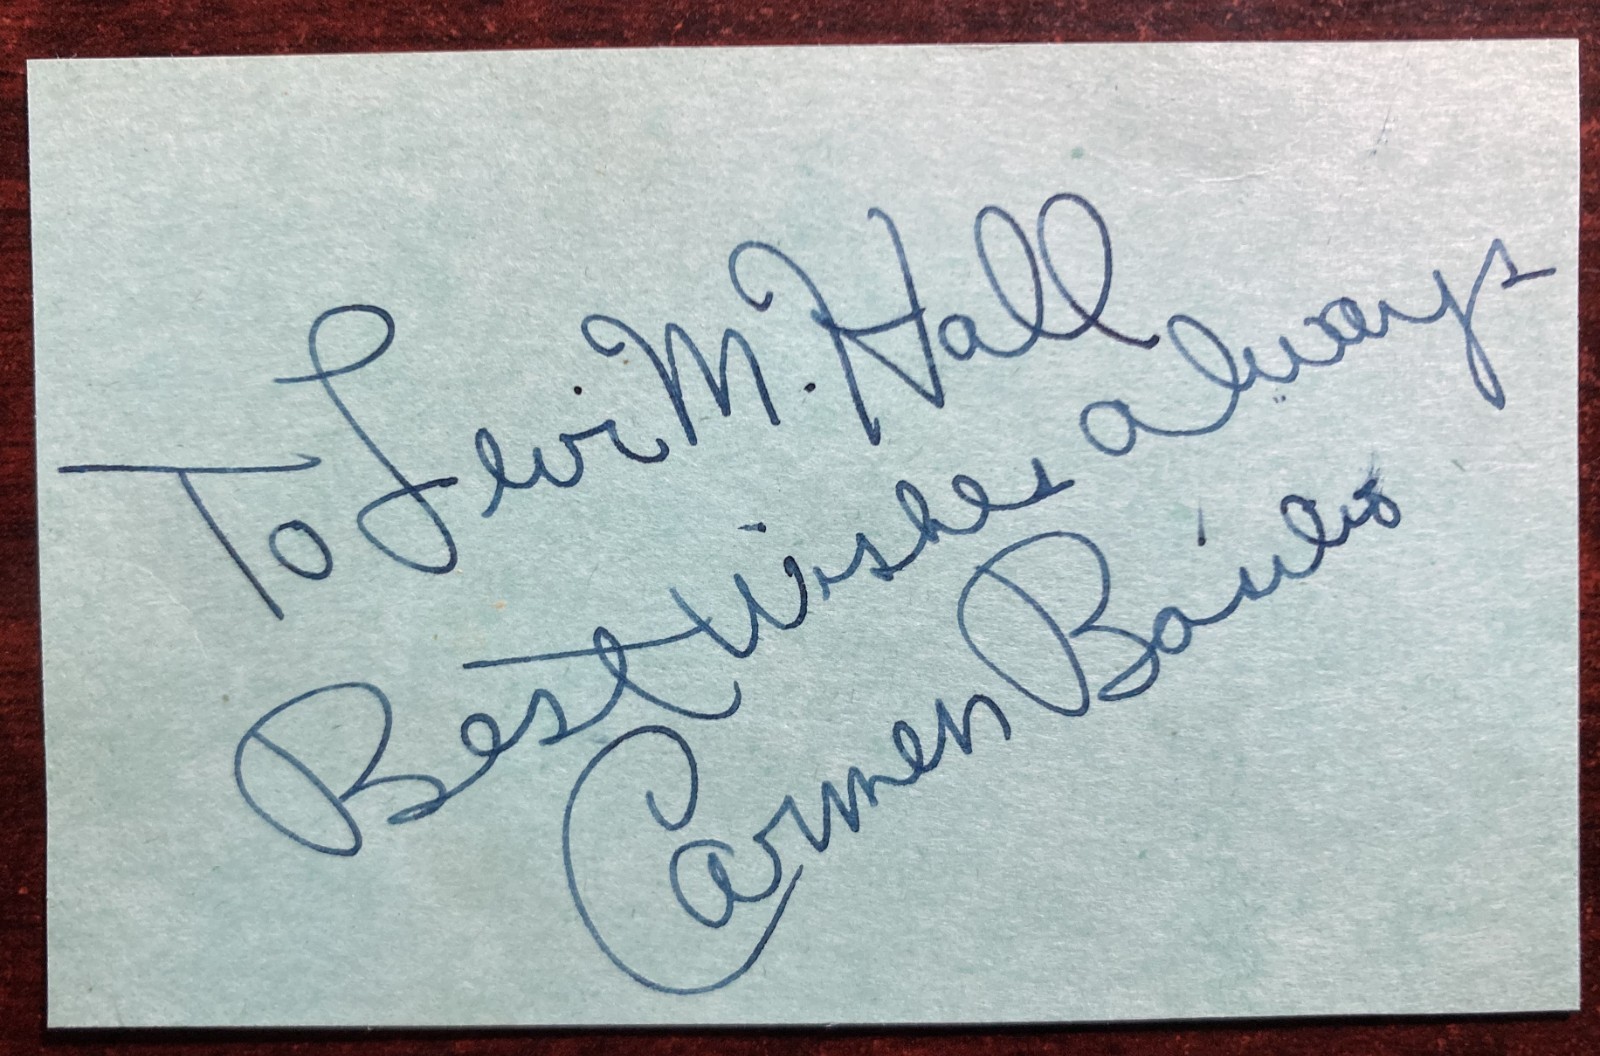 To Levi M. Hall
Best Wishes always
Carmen Basilio